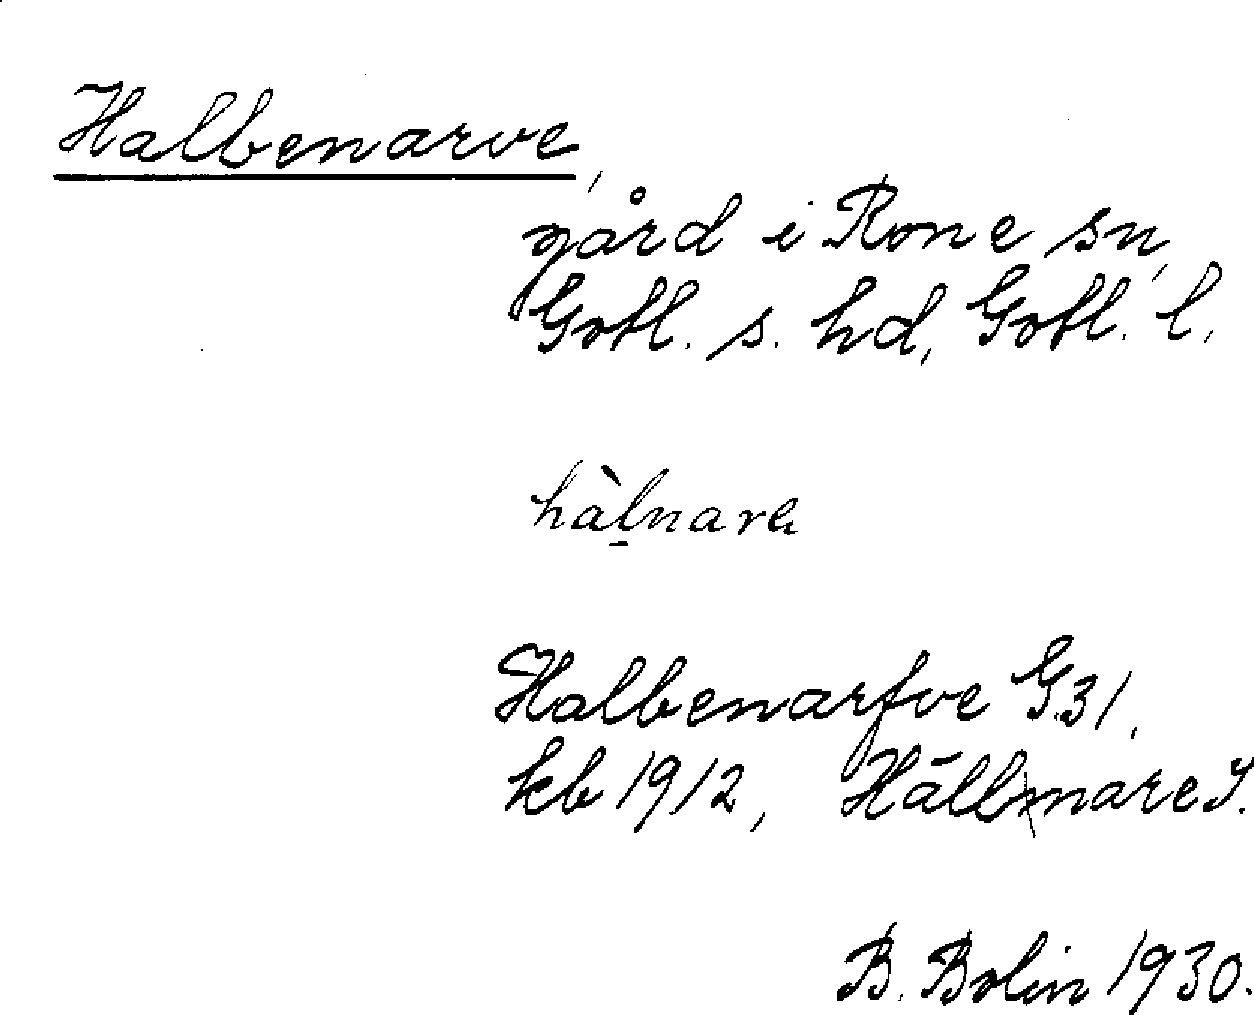 Halbenarve,
gård i Rone sn,
Gotl. s. hd, Gotl. l.
hàlnara
Halbenarfve G.31,
kb 1912, Hälbmare
B. Bolin 1930.